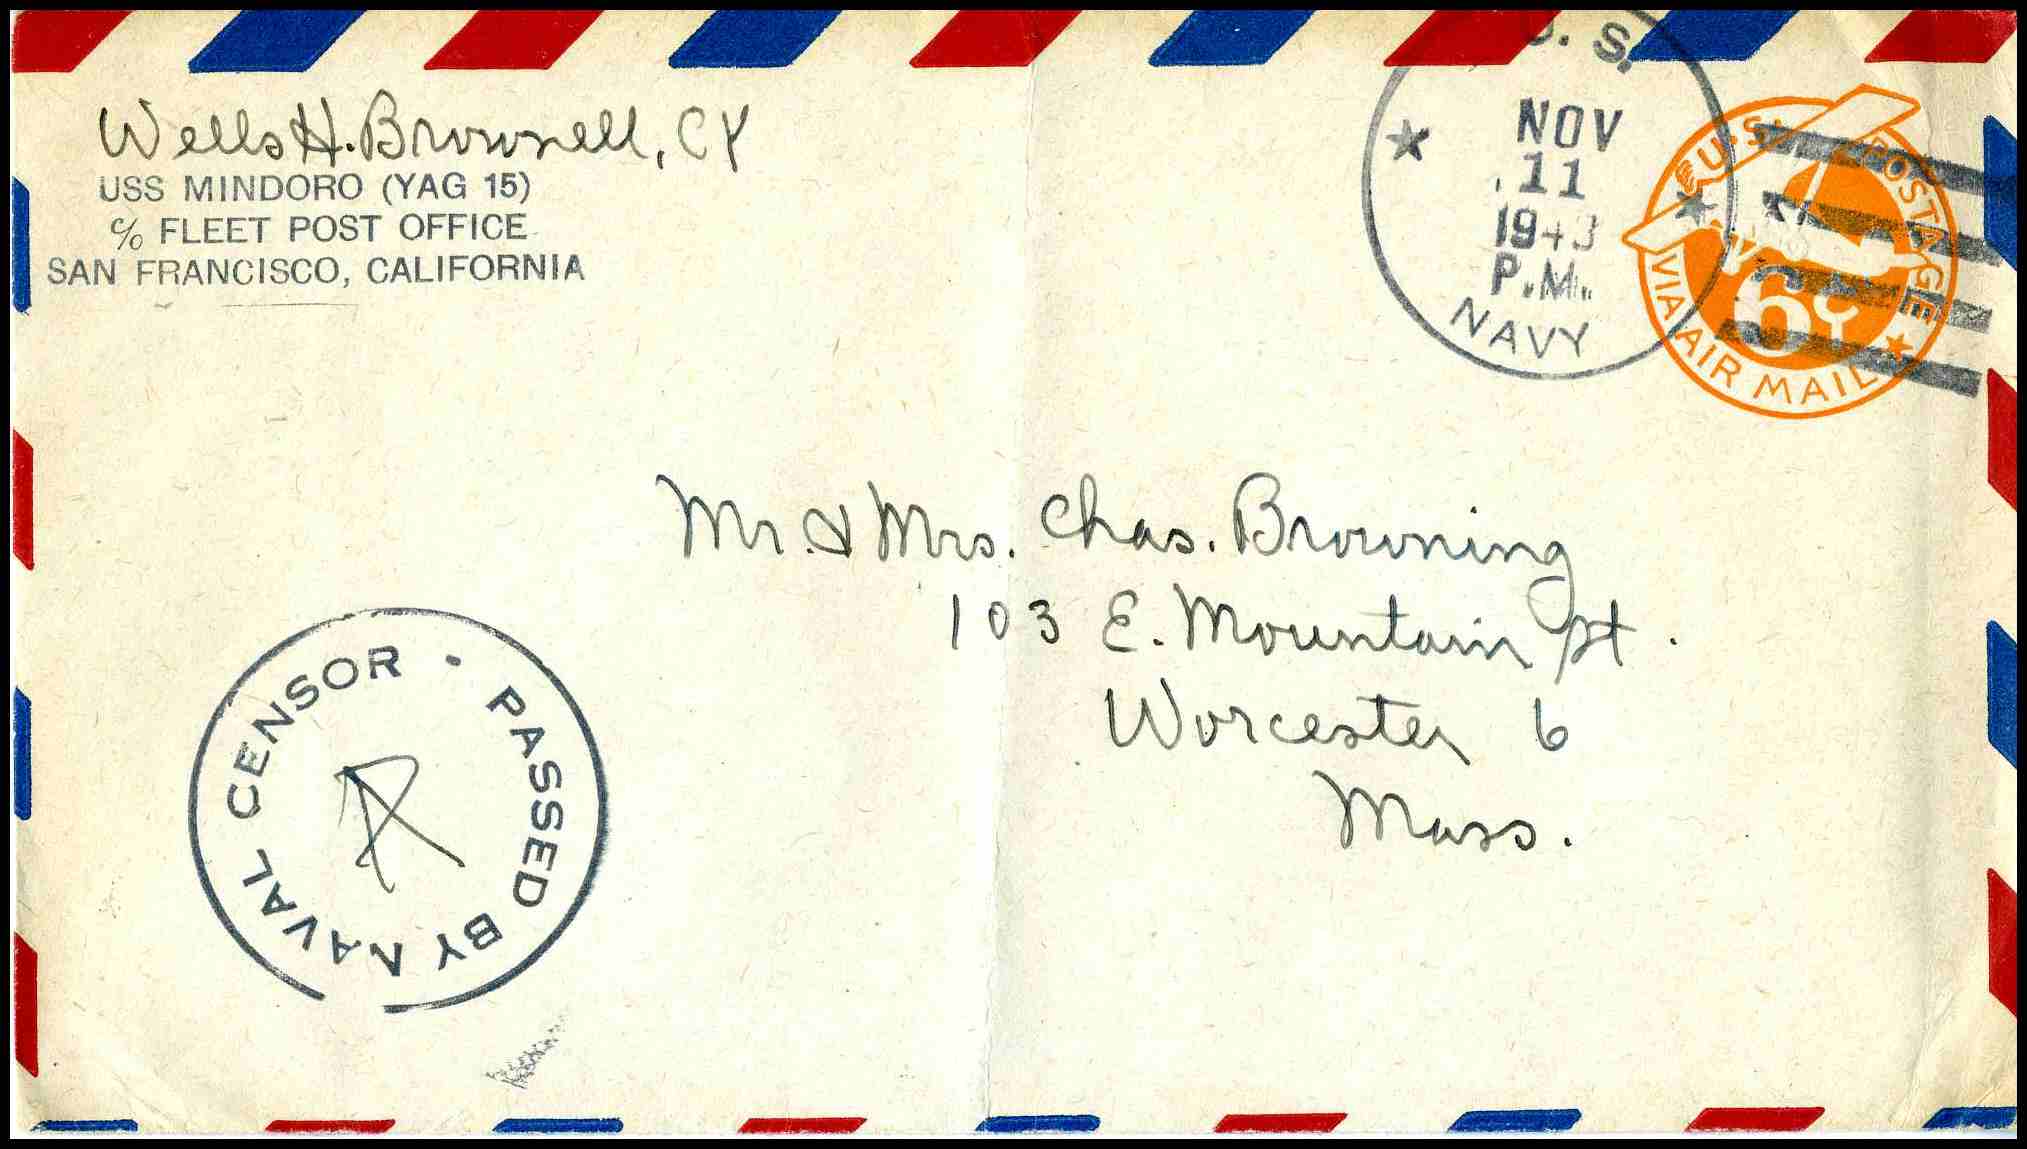 Wells H. Brownell, CY
USS MINDORO (YAG 15)
c/o FLEET POST OFFICE
SAN FRANCISCO, CALIFORNIA
U. S.
NOV
11
1943
P.M.
NAVY
U.S. POSTAGE
6¢
VIA AIR MAIL
Mr. & Mrs. Chas. Browning
103 E. Mountain St.
Worcester 6
Mass.
PASSED BY NAVAL CENSOR